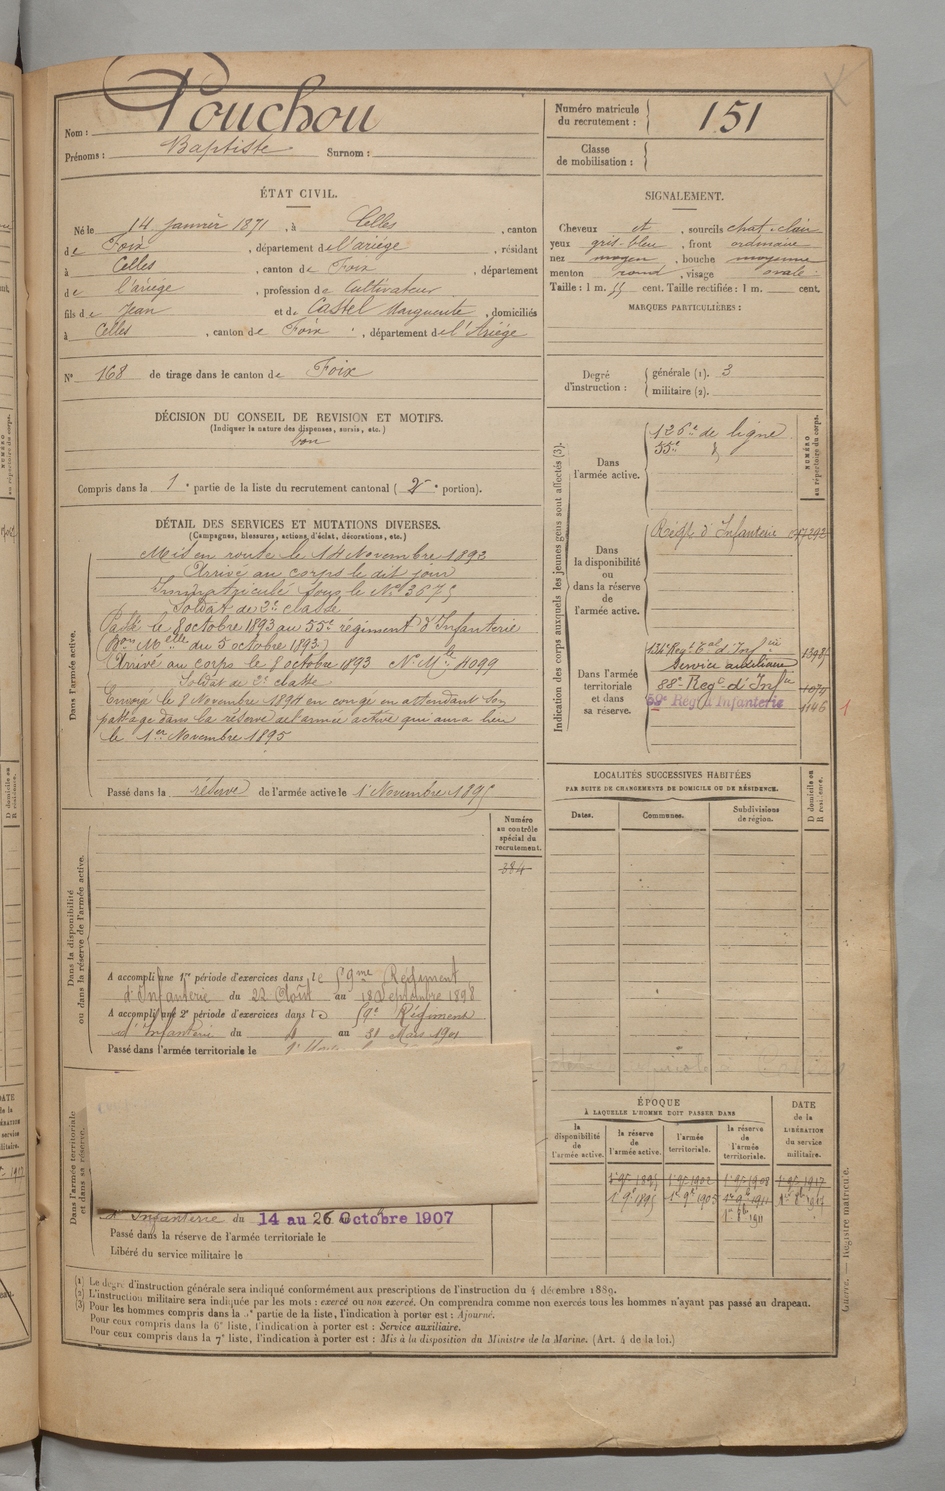 Nom : Pouchou
Prénoms : Baptiste Surnom :
Numéro matricule du recrutement : 151
Classe de mobilisation :
ÉTAT CIVIL.
Né le 14 janvier 1871, à Celles, canton
de Foix, département de l'ariège, résidant
à Celles, canton de Foix, département
de l'ariège, profession de Cultivateur
fils de Jean et de Castel Marguerite, domiciliés
à Celles, canton de Foix, département de l'Ariège
N° 168 de tirage dans le canton de Foix
SIGNALEMENT.
Cheveux et, sourcils chat. clair
yeux gris-bleu, front ordinaire
nez moyen, bouche moyenne
menton rond, visage ovale
Taille : 1 m. 55 cent. Taille rectifiée : 1 m. cent.
MARQUES PARTICULIÈRES :
Degré d'instruction : générale (1). 3
militaire (2).
DÉCISION DU CONSEIL DE REVISION ET MOTIFS.
(Indiquer la nature des dispenses, sursis, etc.)
bon
Compris dans la 1e partie de la liste du recrutement cantonal (2e portion).
DÉTAIL DES SERVICES ET MUTATIONS DIVERSES.
(Campagnes, blessures, actions d'éclat, décorations, etc.)
Dans l'armée active.
Mis en route le 14 Novembre 1892
Arrivé au corps le dit jour
Immatriculé sous le N° 3675
Soldat de 2e classe
Passé le 8 octobre 1893 au 55e régiment d'Infanterie
(Bon Melle du 5 octobre 1893)
Arrivé au corps le 8 octobre 1893 N° Mle 4099
Soldat de 2e classe
Envoyé le 8 Novembre 1894 en congé en attendant son
passage dans la réserve de l'armée active qui aura lieu
le 1er Novembre 1895
Passé dans la réserve de l'armée active le 1 Novembre 1895
Indication des corps auxquels les jeunes gens sont affectés (3).
NUMÉRO au répertoire du corps.
Dans l'armée active.
126e de ligne
55e
Dans la disponibilité ou dans la réserve de l'armée active.
Regt d'Infanterie
Dans l'armée territoriale et dans sa réserve.
134 Regt Tal d'Infie 1398
Service auxiliaire
88e Regt d'Infie 1070
59e Regt d'Infanterie 1146
1
LOCALITÉS SUCCESSIVES HABITÉES
PAR SUITE DE CHANGEMENTS DE DOMICILE OU DE RÉSIDENCE.
Dates. Communes. Subdivisions de région. D domicile ou R résidence.
Dans la disponibilité ou dans la réserve de l'armée active.
Numéro au contrôle spécial du recrutement.
384
A accompli une 1re période d'exercices dans le 59me Régiment
d'Infanterie du 22 Août au 18 Septembre 1898
A accompli une 2e période d'exercices dans le 59e Régiment
d'Infanterie du 4 au 31 Mars 1901
Passé dans l'armée territoriale le
Dans l'armée territoriale et dans sa réserve.
d'Infanterie du 14 au 26 Octobre 1907
Passé dans la réserve de l'armée territoriale le
Libéré du service militaire le
ÉPOQUE
À LAQUELLE L'HOMME DOIT PASSER DANS
DATE de la LIBÉRATION du service militaire.
la disponibilité de l'armée active.
la réserve de l'armée active.
l'armée territoriale.
la réserve de l'armée territoriale.
(1) Le degré d'instruction générale sera indiqué conformément aux prescriptions de l'instruction du 4 décembre 1889.
(2) L'instruction militaire sera indiquée par les mots : exercé ou non exercé. On comprendra comme non exercés tous les hommes n'ayant pas passé au drapeau.
(3) Pour les hommes compris dans la 2e partie de la liste, l'indication à porter est : Ajourné.
Pour ceux compris dans la 6e liste, l'indication à porter est : Service auxiliaire.
Pour ceux compris dans la 7e liste, l'indication à porter est : Mis à la disposition du Ministre de la Marine. (Art. 4 de la loi.)
Guerre. — Registre matricule.